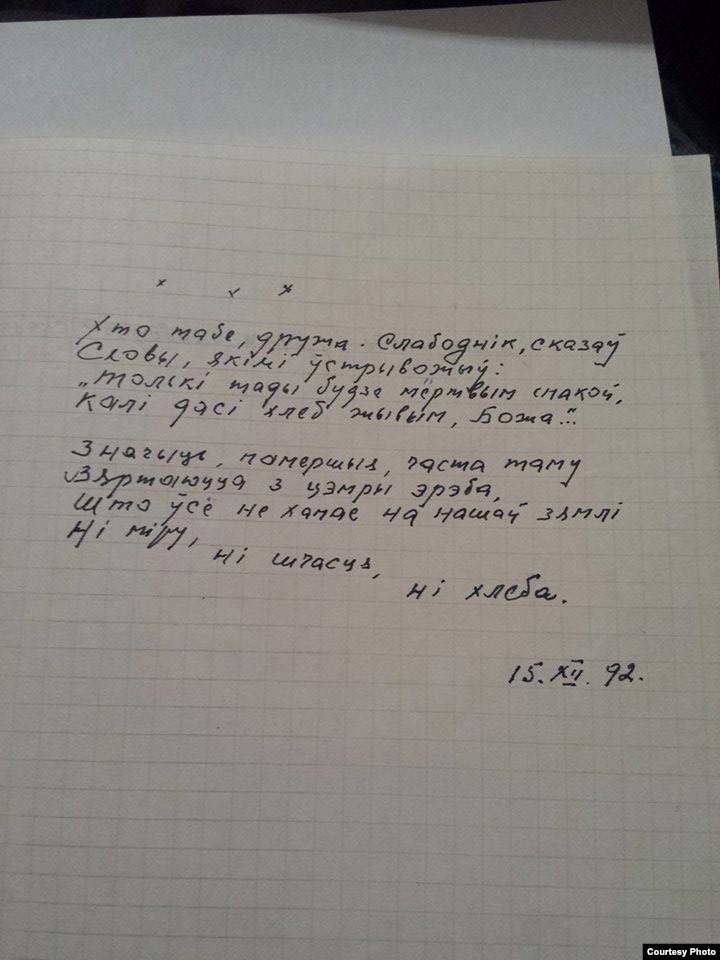 × × ×
Хто табе, дружа. Слабоднік, сказаў
Словы, якімі ўстрывожыў:
„Толькі тады будзе мёртвым спакой,
Калі дасі хлеб жывым, Божа..."
Значыць, памершыя, часта таму
Вяртаюцца з цэмры эрэба,
Што ўсё не хапае на нашай зямлі
Ні міру,
ні шчасця,
ні хлеба.
15. XII. 92.
Courtesy Photo